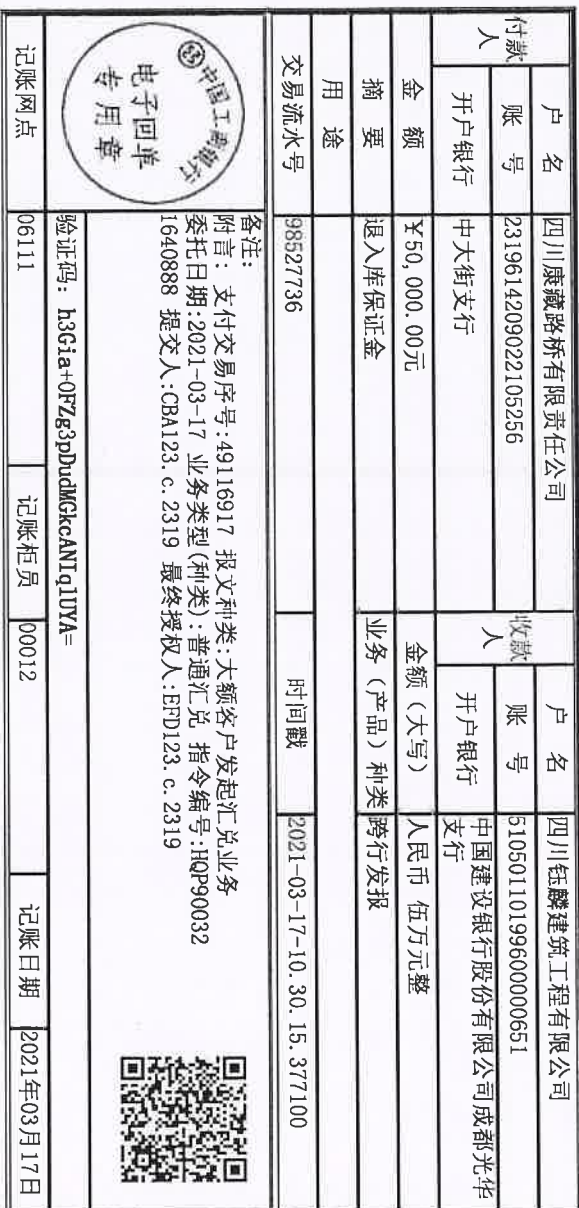 付款人 户 名 四川康藏路桥有限责任公司 收款人 户 名 四川钰麟建筑工程有限公司
账 号 2319614209022105256 账 号 51050110199600000651
开户银行 中大街支行 开户银行 中国建设银行股份有限公司成都光华
支行
金 额 ¥50,000.00元 金额（大写） 人民币 伍万元整
摘 要 退入库保证金 业务（产品）种类 跨行发报
用 途
交易流水号 98527736 时间戳 2021-03-17-10.30.15.377100
中国工商银行
电子回单
专用章
备注:
附言: 支付交易序号:49116917 报文种类:大额客户发起汇兑业务
委托日期:2021-03-17 业务类型(种类):普通汇兑 指令编号:HQP90032
1640888 提交人:CBA123.c.2319 最终授权人:EFD123.c.2319
验证码: h3Gia+OFZg3pDudMGkcANIq1UYA=
记账网点 06111 记账柜员 00012 记账日期 2021年03月17日